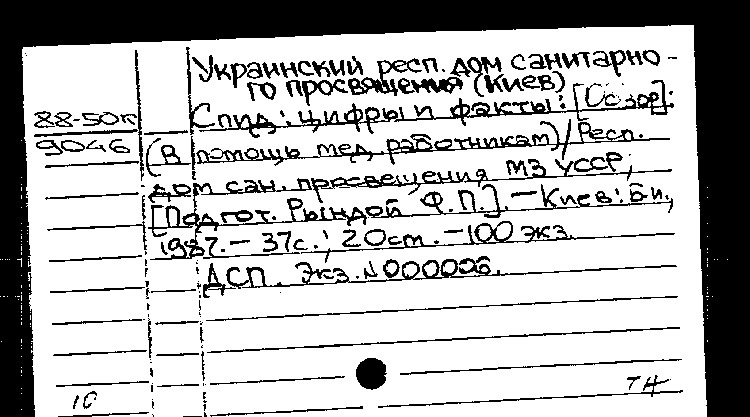 Украинский респ. дом санитарно-
го просвящения (Киев)
88-50к Спид: цифры и факты: [Обзор]:
9046 (В помощь мед. работникам) / Респ.
дом сан. просвещения МЗ УССР;
[Подгот. Рындой Ф.П.]. — Киев: б.и.,
1987. — 37с.; 20 cm. — 100 экз.
ДСП. Экз. № 000006.
10